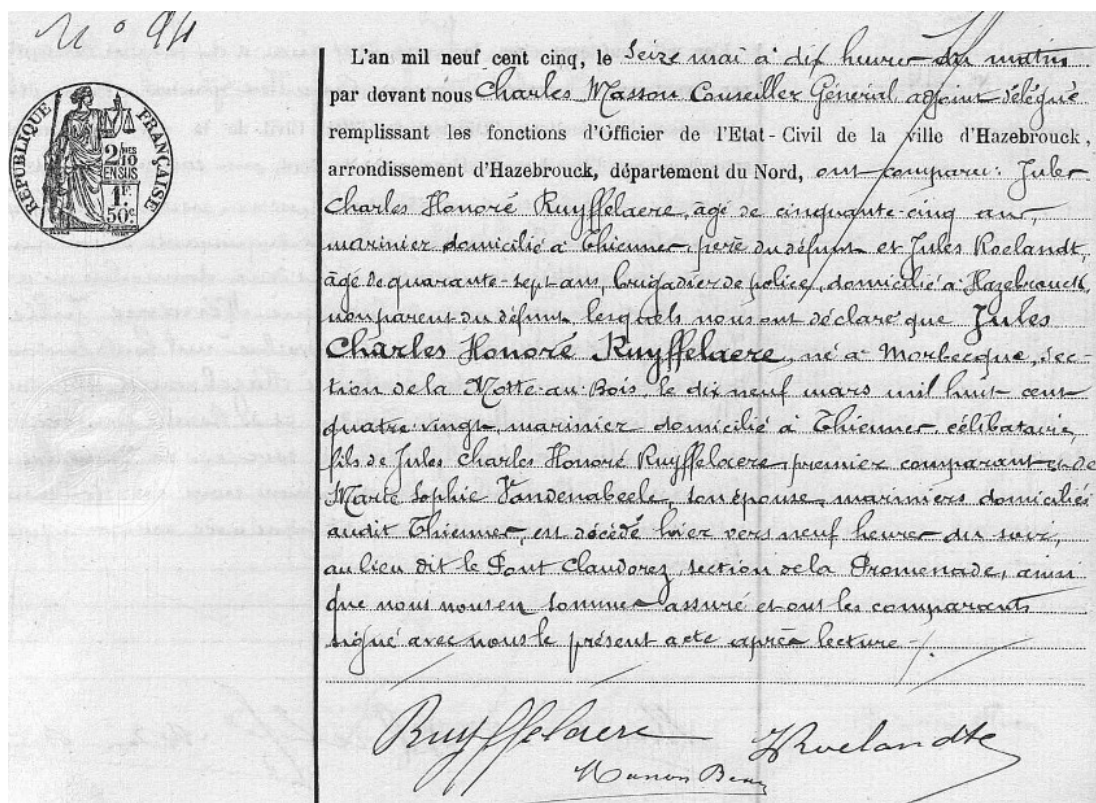 N° 94
RÉPUBLIQUE FRANÇAISE
2/10MES
EN SUS
1F.
50c
L'an mil neuf cent cinq, le seize mai à dix heures du matin
par devant nous Charles Masson Conseiller Général adjoint délégué
remplissant les fonctions d'Officier de l'Etat-Civil de la ville d'Hazebrouck,
arrondissement d'Hazebrouck, département du Nord, ont comparu: Jules
Charles Honoré Ruyffelaere, âgé de cinquante-cinq ans,
marinier domicilié à Thiennes, père du défunt et Jules Roelandt,
âgé de quarante-sept ans, brigadier de police, domicilié à Hazebrouck,
non parent du défunt, lesquels nous ont déclaré que Jules
Charles Honoré Ruyffelaere, né à Morbecque, sec-
tion de la Motte-au-Bois, le dix neuf mars mil huit cent
quatre vingt, marinier domicilié à Thiennes, célibataire,
fils de Jules Charles Honoré Ruyffelaere premier comparant et de
Marie Sophie Vandenabeele, son épouse, mariniers domiciliés
audit Thiennes, est décédé hier vers neuf heures du soir,
au lieu dit le Pont Claudorez, section de la Promenade, ainsi
que nous nous en sommes assuré et ont les comparants
signé avec nous le présent acte après lecture
Ruyffelaere JRoelandt
Masson